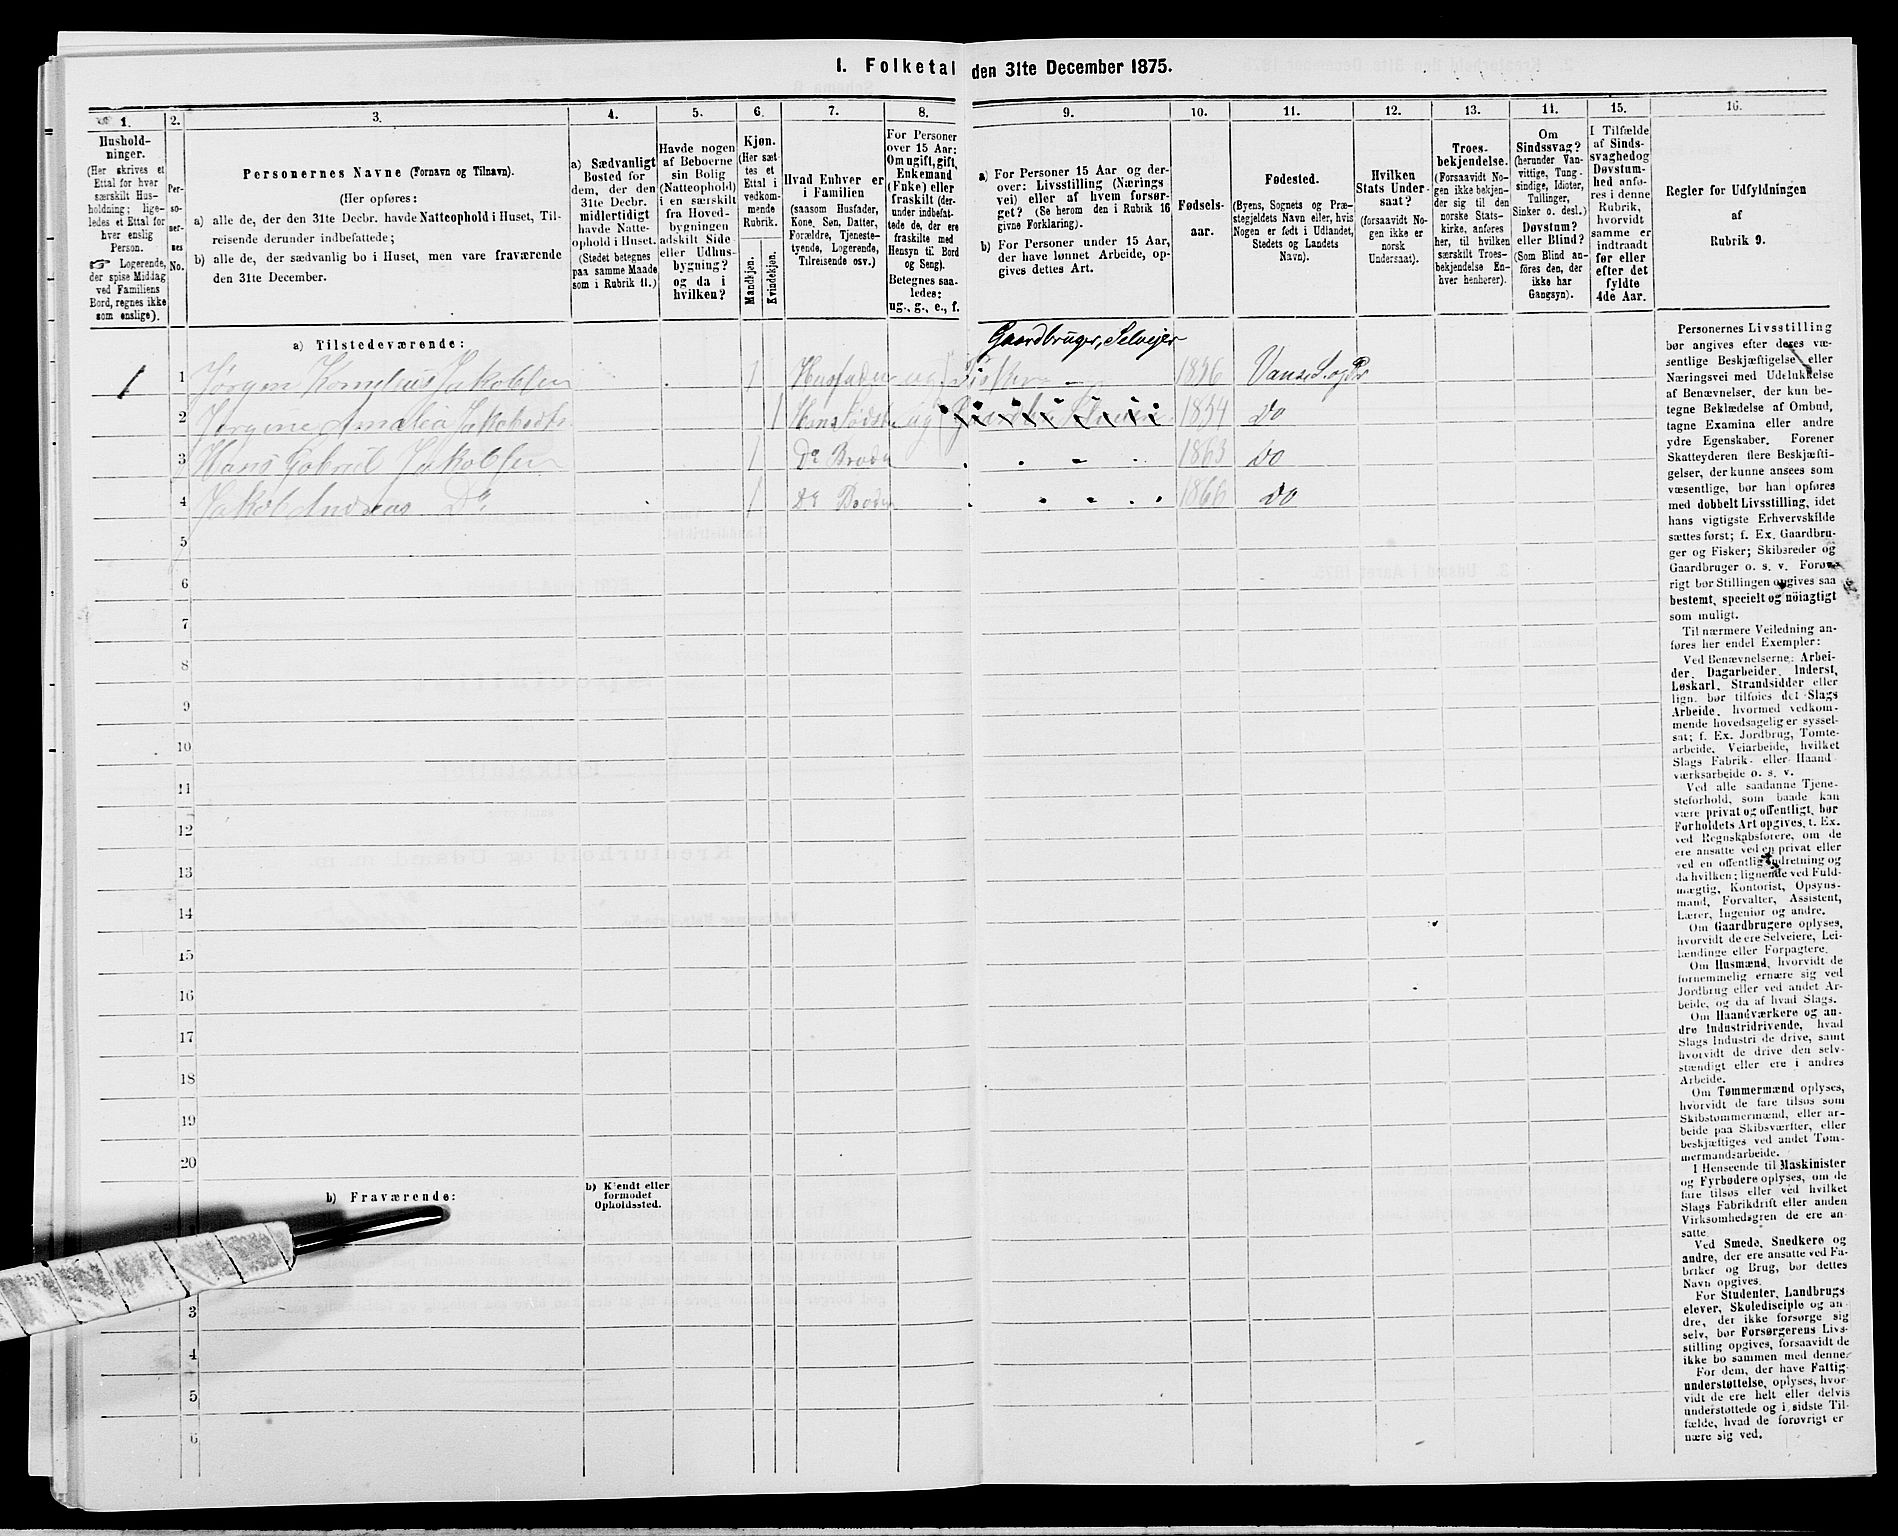 1. Folketal den 31te December 1875.
1. 2. 3. 4. 5. 6. 7. 8. 9. 10. 11. 12. 13. 14. 15. 16.
Hushold-
ninger.
(Her skrives et
Ettal for hver
særskilt Hus-
holdning; lige-
ledes et Ettal for
hver enslig
Person.
☞ Logerende,
der spise Middag
ved Familiens
Bord, regnes ikke
som enslige).
Per-
so-
ner-
nes
No.
Personernes Navne (Fornavn og Tilnavn).
(Her opføres:
a) alle de, der den 31te Decbr. havde Natteophold i Huset, Til-
reisende derunder indbefattede;
b) alle de, der sædvanlig bo i Huset, men vare fraværende
den 31te December.
a) Sædvanligt
Bosted for
dem, der den
31te Decbr.
midlertidigt
havde Natte-
ophold i Huset.
(Stedet betegnes
paa samme Maade
som i Rubrik 11.)
Havde nogen
af Beboerne
sin Bolig
(Natteophold)
i en særskilt
fra Hoved-
bygningen
adskilt Side-
eller Udhus-
bygning?
og da i
hvilken?
Kjøn.
(Her sæt-
tes et
Ettal i
vedkom-
mende
Rubrik.)
Mandkjøn.
Kvindekjøn.
Hvad Enhver er
i Familien
(saasom Husfader,
Kone, Søn, Datter,
Forældre, Tjeneste-
tyende, Logerende,
Tilreisende osv.)
For Personer
over 15 Aar:
Om ugift, gift,
Enkemand
(Enke) eller
fraskilt (der-
under indbefat-
tede de, der ere
fraskilte med
Hensyn til Bord
og Seng).
Betegnes saa-
ledes:
ug., g., e., f.
a) For Personer 15 Aar og der-
over: Livsstilling (Nærings
vei) eller af hvem forsør-
get? (Se herom den i Rubrik 16
givne Forklaring).
b) For Personer under 15 Aar,
der have lønnet Arbeide, op-
gives dettes Art.
Fødsels-
aar.
Fødested.
(Byens, Sognets og Præ-
stegjeldets Navn eller, hvis
Nogen er født i Udlandet,
Stedets og Landets
Navn).
Hvilken
Stats Under-
saat?
(forsaavidt No-
gen ikke er
norsk
Undersaat).
Troes-
bekjendelse.
(Forsaavidt No-
gen ikke bekjen-
der sig til den
norske Stats-
kirke, anføres
her, til hvilken
særskilt Troes-
bekjendelse En-
hver henhører).
Om
Sindssvag?
(herunder Van-
vittige, Tung-
sindige, Idioter,
Tullinger,
Sinker o. desl.)
Døvstum?
eller Blind?
(Som Blind an-
føres den, der
ikke har
Gangsyn).
I Tilfælde
af Sinds-
svaghed og
Døvstum-
hed anfø-
res i denne
Rubrik,
hvorvidt
samme er
indtraadt
før eller
efter det
fyldte
4de Aar.
Regler for Udfyldningen
af
Rubrik 9.
a) Tilstedeværende:
Gaardbruger, Selvejer
1 1 Jørgen Kornelius Jakobsen 1 Husfader ug Fisker 1856 Vanse S. og Pr
2 Jørgine Amalia Jakobsdtr 1 Hans Søster ug 1854 Do
3 Hans Gabriel Jakobsen 1 Do Broder 1863 Do
4 Jakob Andreas Do 1 Do Broder 1866 Do
5
6
7
8
9
10
11
12
13
14
15
16
17
18
19
20
b) Fraværende:
b) Kjendt eller
formodet
Opholdssted.
3
4
5
6
Personernes Livsstilling
bør angives efter deres væ-
sentlige Beskjæftigelse eller
Næringsvei med Udelukkelse
af Benævnelser, der kun be-
tegne Beklædelse af Ombud,
tagne Examina eller andre
ydre Egenskaber. Forener
Skatteyderen flere Beskjæfti-
gelser, der kunne ansees som
væsentlige, bør han opføres
med dobbelt Livsstilling, idet
hans vigtigste Erhvervskilde
sættes først; f. Ex. Gaardbru-
ger og Fisker; Skibsreder og
Gaardbruger o. s. v. Forøv-
rigt bør Stillingen opgives saa
bestemt, specielt og nöiagtigt
som muligt.
Til nærmere Veiledning an-
føres her endel Exempler:
Ved Benævnelserne: Arbei-
der, Dagarbeider, Inderst,
Løskarl, Strandsidder eller
lign. bør tilføies det Slags
Arbeide, hvormed vedkom-
mende hovedsagelig er syssel-
sat; f. Ex. Jordbrug, Tomte-
arbeide, Veiarbeide, hvilket
Slags Fabrik- eller Haand-
værksarbeide o. s. v.
Ved alle saadanne Tjene-
steforhold, som baade kan
være privat og offentligt, bør
Forholdets Art opgives, t. Ex.
ved Regnskabsførere, om de
ere ansatte ved en privat eller
ved en offentlig Indretning og
da hvilken; lignende ved Fuld-
mægtig, Kontorist, Opsyns-
mand, Forvalter, Assistent,
Lærer, Ingeniør og andre.
Om Gaardbrugere oplyses,
hvorvidt de ere Selveiere, Lei-
lændinge eller Forpagtere.
Om Husmænd, hvorvidt de
fornemmelig ernære sig ved
Jordbrug eller ved andet Ar-
beide, og da af hvad Slags.
Om Haandværkere og an-
dre Industridrivende, hvad
Slags Industri de drive, samt
hvorvidt de drive den selv-
stændigt eller ere i andres
Arbeide.
Om Tømmermænd oplyses,
hvorvidt de fare tilsøs som
Skibstømmermænd, eller ar-
beide paa Skibsværfter, eller
beskjæftiges ved andet Tøm-
mermandsarbeide.
I Henseende til Maskinister
og Fyrbødere oplyses, om de
fare tilsøs eller ved hvilket
Slags Fabrikdrift eller anden
Virksomhedsgren de ere an-
satte.
Ved Smede, Snedkere og
andre, der ere ansatte ved Fa-
briker og Brug, bør dettes
Navn opgives.
For Studenter, Landbrugs
elever, Skoledisciple og an-
dre, der ikke forsørge sig
selv, bør Forsørgerens Livs-
stilling opgives, forsaavidt de
ikke bo sammen med denne.
For dem, der have Fattig-
understøttelse, oplyses, hvor-
vidt de ere helt eller delvis
understøttede og i sidste Til-
fælde, hvad de forøvrigt er
nære sig ved.